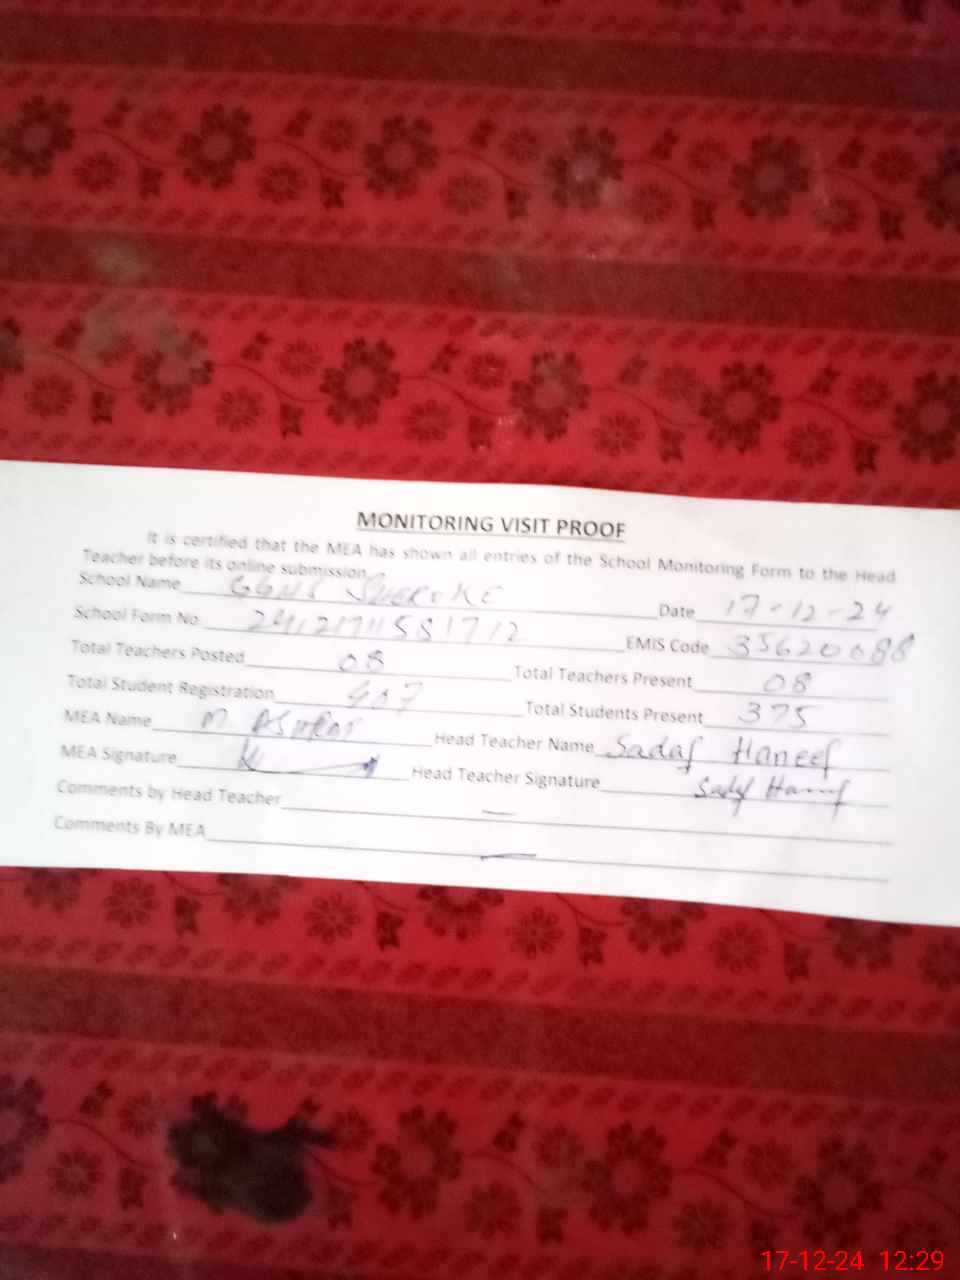 MONITORING VISIT PROOF
It is certified that the MEA has shown all entries of the School Monitoring Form to the Head
Teacher before its online submission.
School Name SHEROKE Date 17-12-24
School Form No EMIS Code 35620088
Total Teachers Posted 08 Total Teachers Present 08
Total Student Registration 407 Total Students Present 375
MEA Name M ASHRAF Head Teacher Name Sadaf Haneef
MEA Signature Head Teacher Signature Sadaf Haneef
Comments by Head Teacher —
Comments By MEA —
17-12-24 12:29